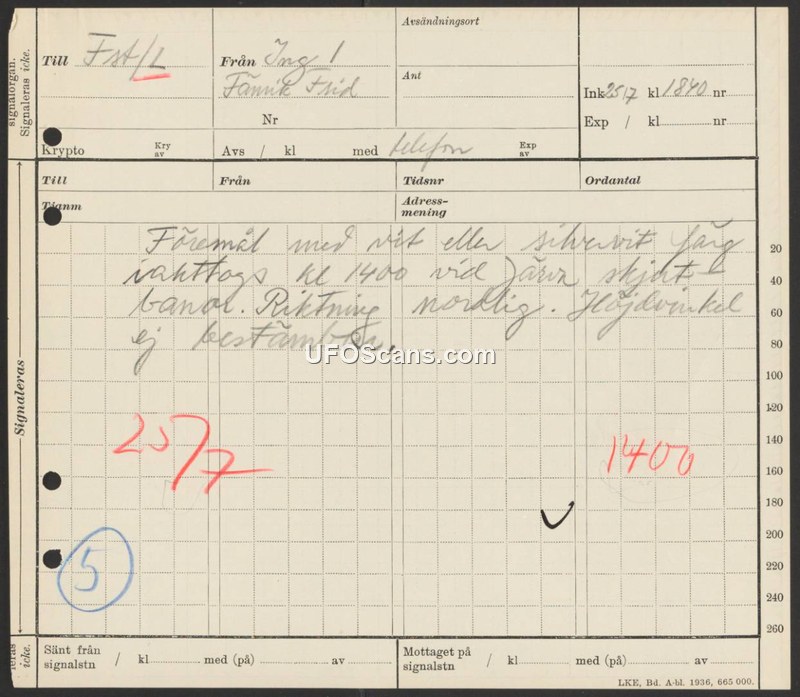 Avsändningsort
Till Fst/L
Från Ing 1
Fänrik Frid
Ant
Nr
Ink 25/7 kl 1840 nr
Exp / kl nr
Krypto
Kry av
Avs / kl med telefon
Exp av
signalorgan.
Signaleras icke.
Till
Från
Tidsnr
Ordantal
Tjänm
Adress-
mening
Föremål med vit eller silvervit färg
iakttogs kl 1400 vid Järva skjut-
banor. Riktning nordlig. Höjdvinkel
ej bestämbar.
UFOScans.com
20
40
60
80
100
120
140
160
180
200
220
240
260
Signaleras
25/7
1400
5
icke.
Sänt från
signalstn / kl med (på) av
Mottaget på
signalstn / kl med (på) av
LKE, Bd. A-bl. 1936, 665 000.